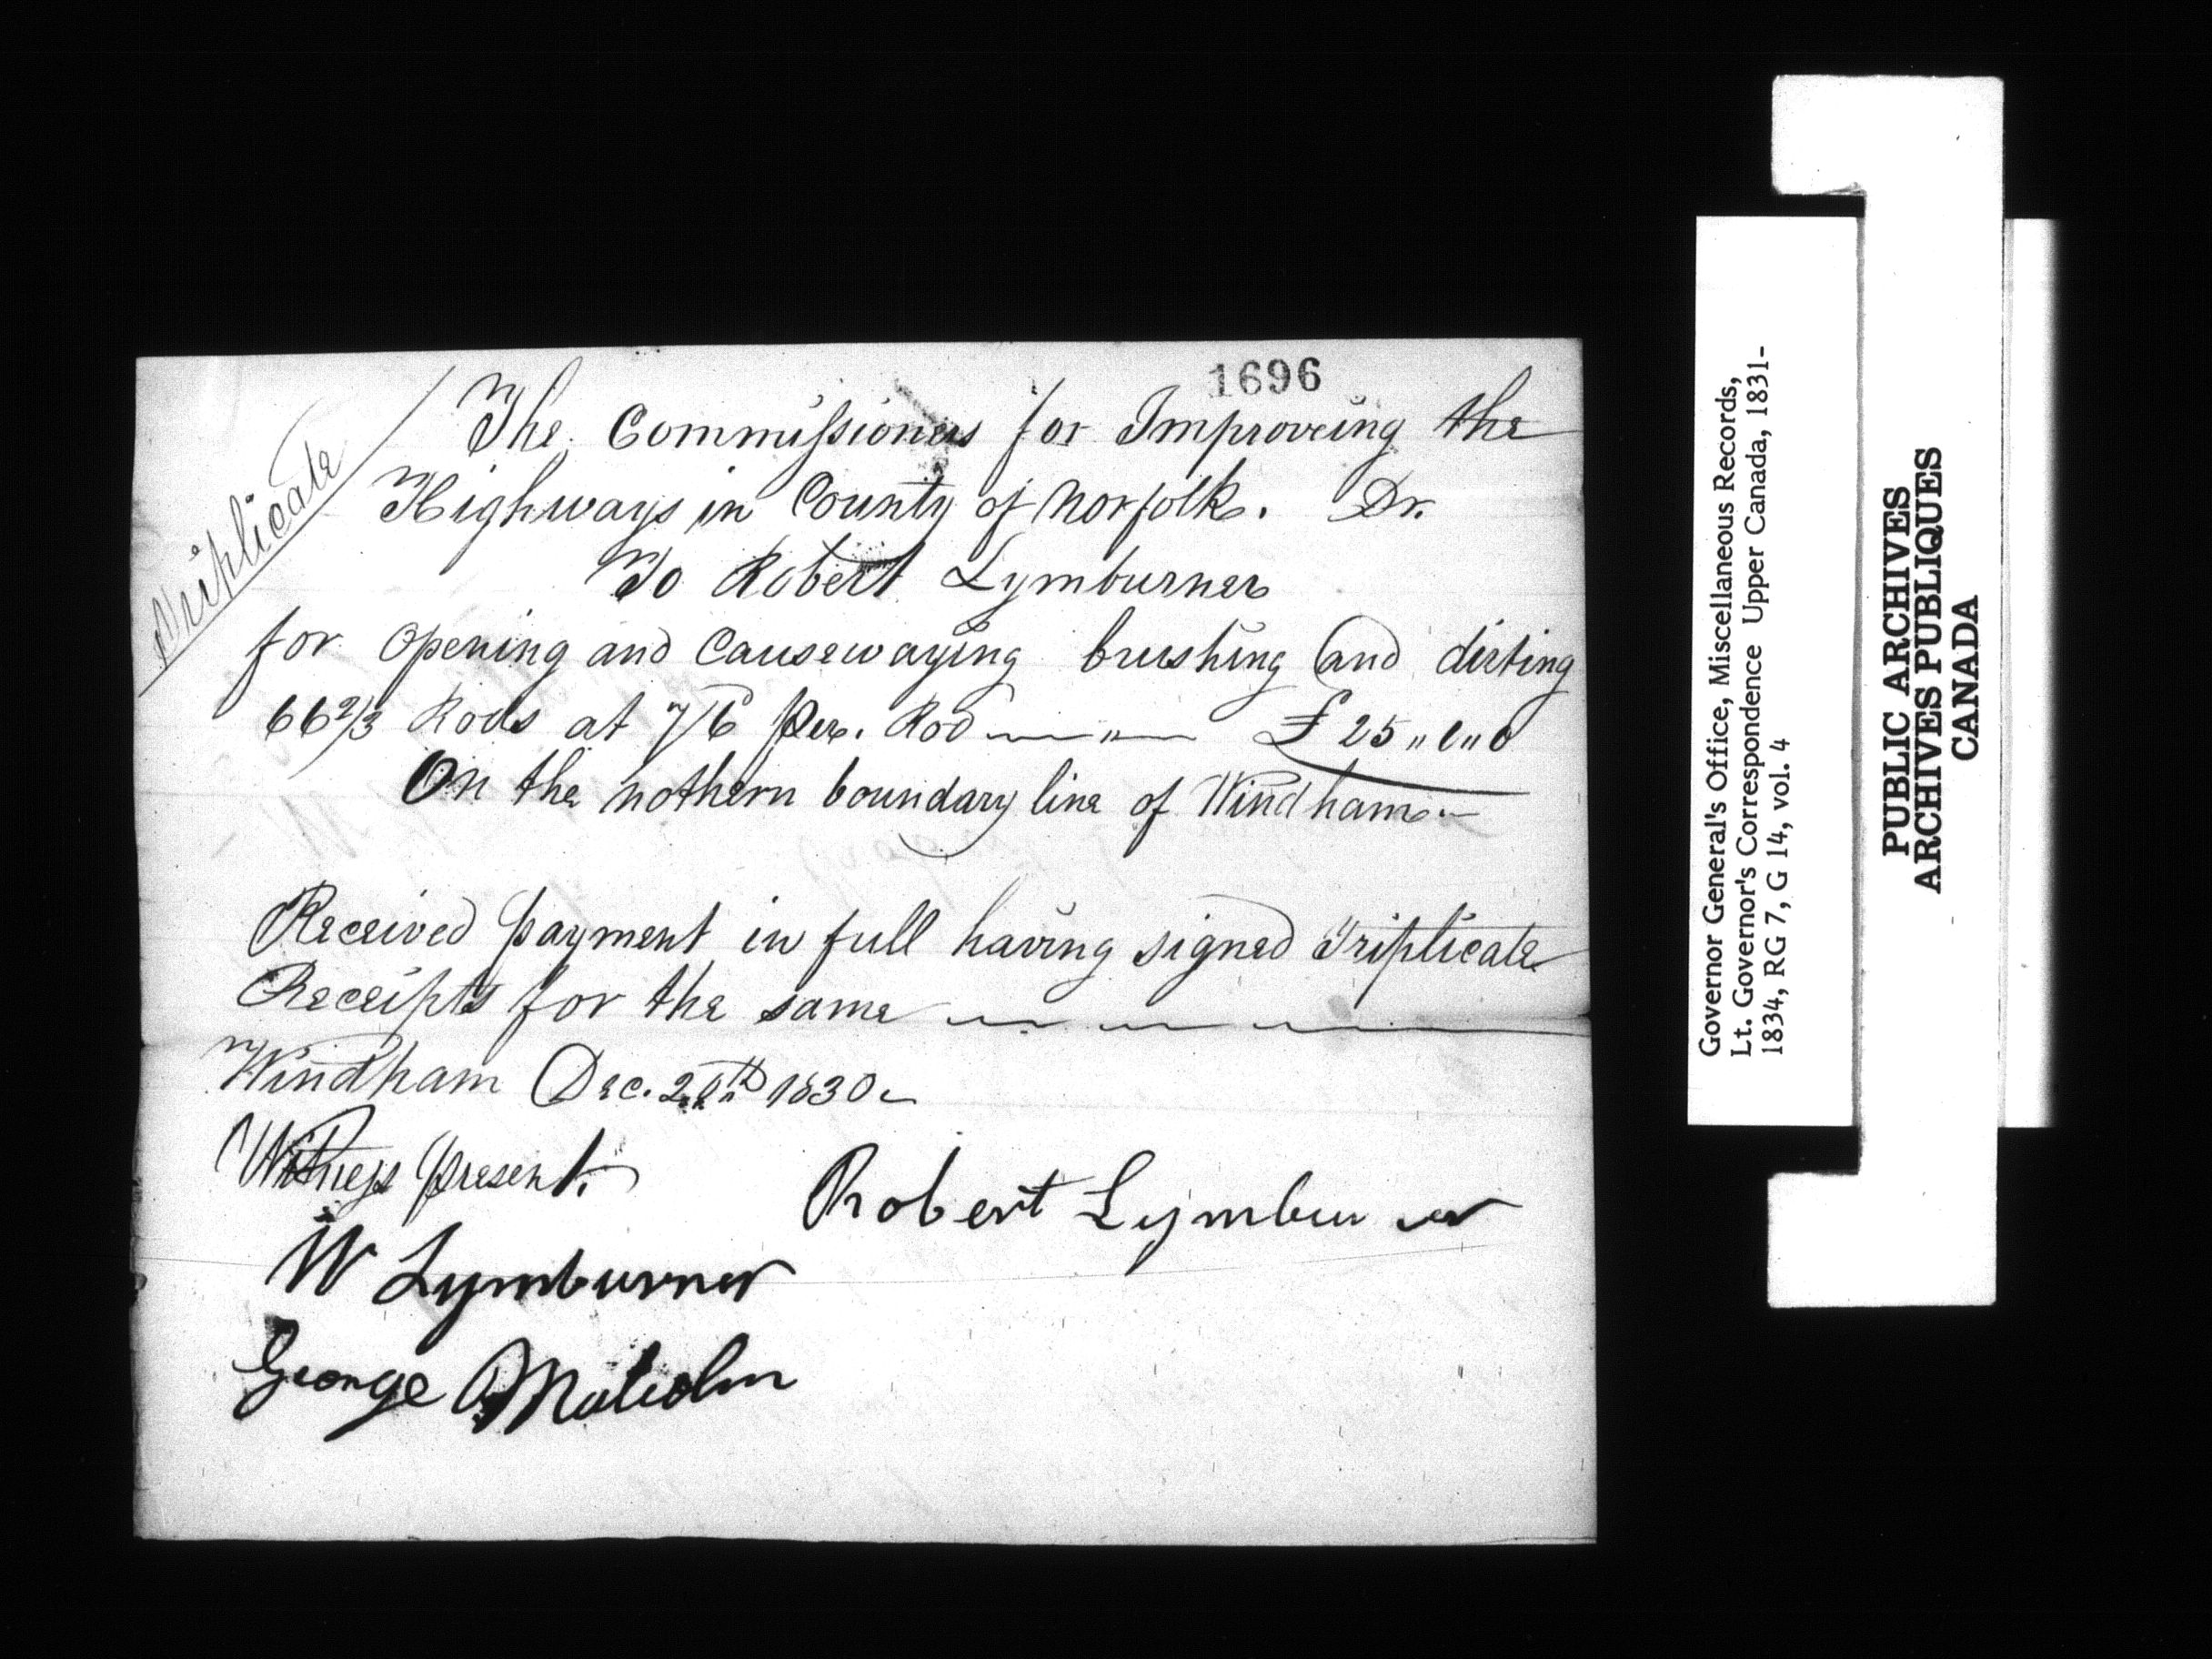 1696
Triplicate
The Commissioners for Improveing the
Highways in County of Norfolk. Dr.
To Robert Lymburner
for Opening and Causewaying brushing and dirting
66 2/3 Rods at 7/6 per. Rod — " — £ 25 " 0 " 0
On the nothern boundary line of Windham
Received payment in full having signed Triplicate
Receipts for the same
Windham Dec. 20th 1830
Witness present.
Robert Lymburner
W Lymburner
George Malcolm
Governor General's Office, Miscellaneous Records,
Lt. Governor's Correspondence Upper Canada, 1831-
1834, RG 7, G 14, vol. 4
PUBLIC ARCHIVES
ARCHIVES PUBLIQUES
CANADA